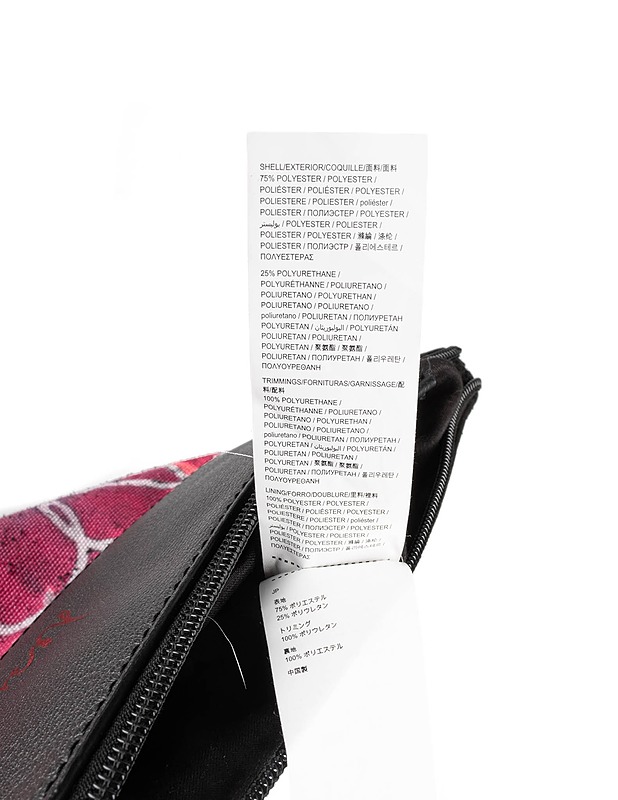 SHELL/EXTERIOR/COQUILLE/面料/面料
75% POLYESTER / POLYESTER /
POLIÉSTER / POLIÉSTER / POLYESTER /
POLIESTERE / POLIESTER / poliéster /
POLIESTER / ПОЛИЭСТЕР / POLYESTER /
بوليستر / POLYESTER / POLIESTER /
POLIESTER / POLYESTER / 滌綸 / 涤纶 /
POLIESTER / ПОЛИЭСТР / 폴리에스테르 /
ΠΟΛΥΕΣΤΕΡΑΣ
25% POLYURETHANE /
POLYURÉTHANNE / POLIURETANO /
POLIURETANO / POLYURETHAN /
POLIURETANO / POLIURETANO /
poliuretano / POLIURETAN / ПОЛИУРЕТАН
POLYURETAN / البوليوريتان / POLYURETÁN
POLIURETAN / POLIURETAN /
POLYURETAN / 聚氨酯 / 聚氨酯 /
POLIURETAN / ПОЛИУРЕТАН / 폴리우레탄 /
ΠΟΛΥΟΥΡΕΘΑΝΗ
TRIMMINGS/FORNITURAS/GARNISSAGE/配
料/配料
100% POLYURETHANE /
POLYURÉTHANNE / POLIURETANO /
POLIURETANO / POLYURETHAN /
POLIURETANO / POLIURETANO /
poliuretano / POLIURETAN / ПОЛИУРЕТАН /
POLYURETAN / البوليوريتان / POLYURETÁN /
POLIURETAN / POLIURETAN /
POLYURETAN / 聚氨酯 / 聚氨酯 /
POLIURETAN / ПОЛИУРЕТАН / 폴리우레탄 /
ΠΟΛΥΟΥΡΕΘΑΝΗ
LINING/FORRO/DOUBLURE/里料/裡料
100% POLYESTER / POLYESTER /
POLIÉSTER / POLIÉSTER / POLYESTER /
POLIESTERE / POLIESTER / poliéster /
POLIESTER / ПОЛИЭСТЕР / POLYESTER /
بوليستر / POLYESTER / POLIESTER /
POLIESTER / POLYESTER / 滌綸 / 涤纶 /
POLIESTER / ПОЛИЭСТР / 폴리에스테르 /
ΠΟΛΥΕΣΤΕΡΑΣ
JP
表地
75% ポリエステル
25% ポリウレタン
トリミング
100% ポリウレタン
裏地
100% ポリエステル
中国製